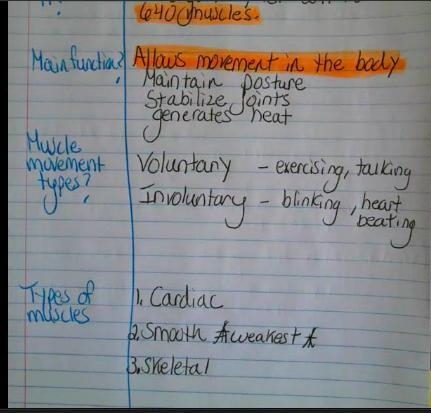 640 muscles.
Main function?
Allows movement in the body
Maintain posture
Stabilize joints
generates heat
Muscle movement types?
Voluntary - exercising, talking
Involuntary - blinking, heart beating
Types of muscles
1. Cardiac
2. Smooth ☆weakest☆
3. Skeletal